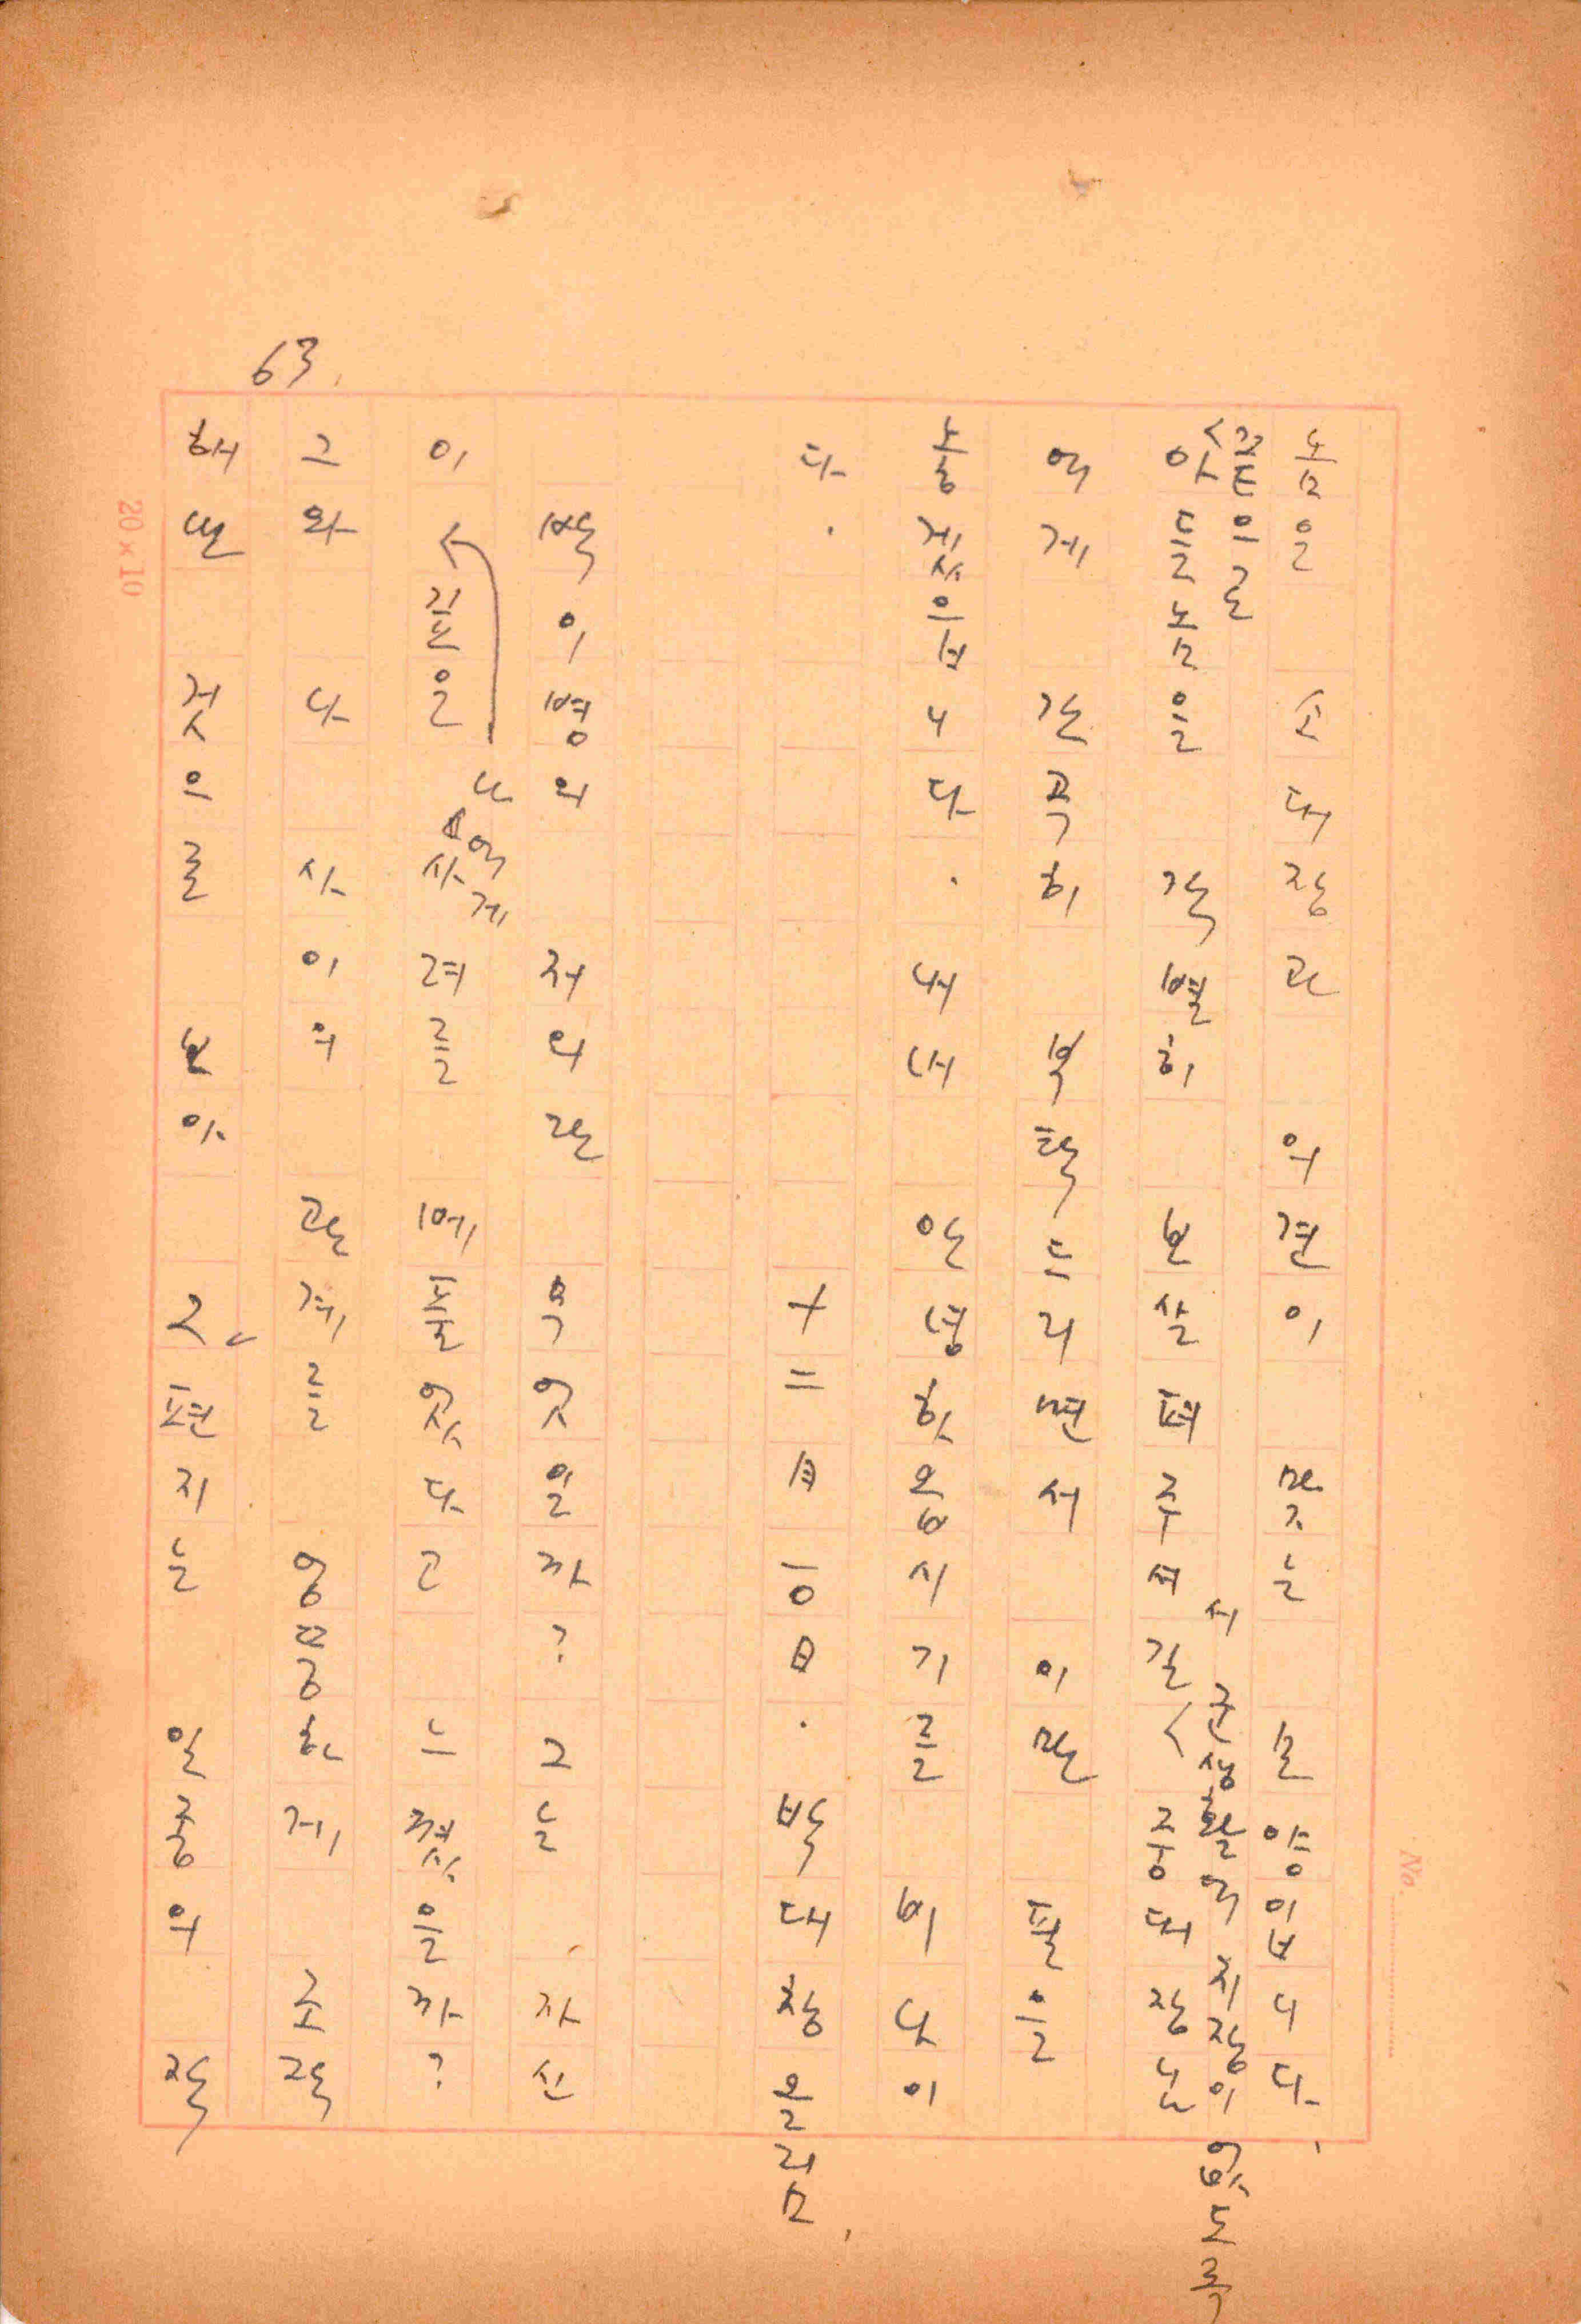 놈은 소대장과 의견이 맞는 모양입니다.
끝으로
아들놈을 각별히 보살펴주셔 중대장님
서 군생활에 지장이 없도록
에게 간곡히 부탁드리면서 이만 필을
놓겠읍니다. 내내 안녕하옵시기를 비나이
다. 十二月 一0日. 박대창 올림,
백이병의 저의란 무엇일까? 그는 자신
이 깊은 사려를 베풀었다고 느꼈을까?
나에게
그와 나 사이의 관계를 엉뚱하게 조작
해낸 것으로 보아 그 편지는 일종의 작
63.
20×10
No.